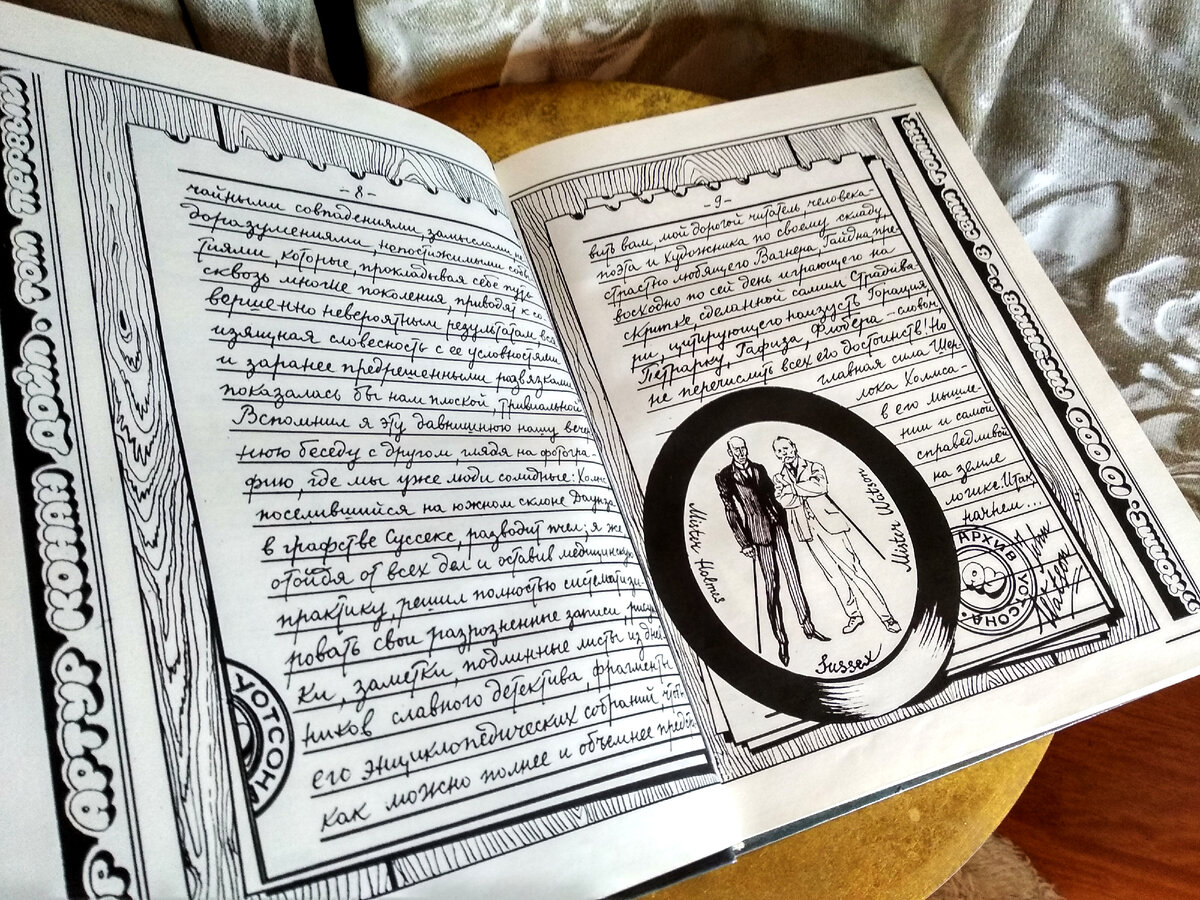 АРТУР КОНАН ДОЙЛ. ТОМ ПЕРВЫЙ
- 8 -
чайными совпадениями, замыслами, не-
доразумениями, непостижимыми собы-
тиями, которые, прокладывая себе путь
сквозь многие поколения, приводят к со-
вершенно невероятным результатам, вся
изящная словесность с ее условностями
и заранее предрешенными развязками
показалась бы нам плоской, тривиальной
Вспомнил я эту давнишнюю нашу вече-
нюю беседу с другом, глядя на фотогра-
фию, где мы уже люди солидные: Холмс
поселившийся на южном склоне Даунза
в графстве Суссекс, разводит пчел; я же
отойдя от всех дел и оставив медицинскую
практику, решил полностью системати-
ровать свои разрозненные записи, рисун-
ки, заметки, подлинные листы из днев-
ников славного детектива, фрагменты
его энциклопедических собраний, чтоб
как можно полнее и объемнее предста-
УОТСОНА
- 9 -
вить вам, мой дорогой читатель, человека-
поэта и художника по своему складу,
страстно любящего Вагнера, Гайдна, пре-
восходно по сей день играющего на
скрипке, сделанной самим Страдива-
ри, цитирующего наизусть Горация,
Петрарку, Гафиза, Флобера - словом,
не перечислить всех его достоинств! Но
главная сила Шер-
лока Холмса -
в его мышле-
нии и самой
справедливой
на земле
логике. Итак
начнем...
Mister Holmes
Mister Watson
Sussex
АРХИВ УОТСОНА